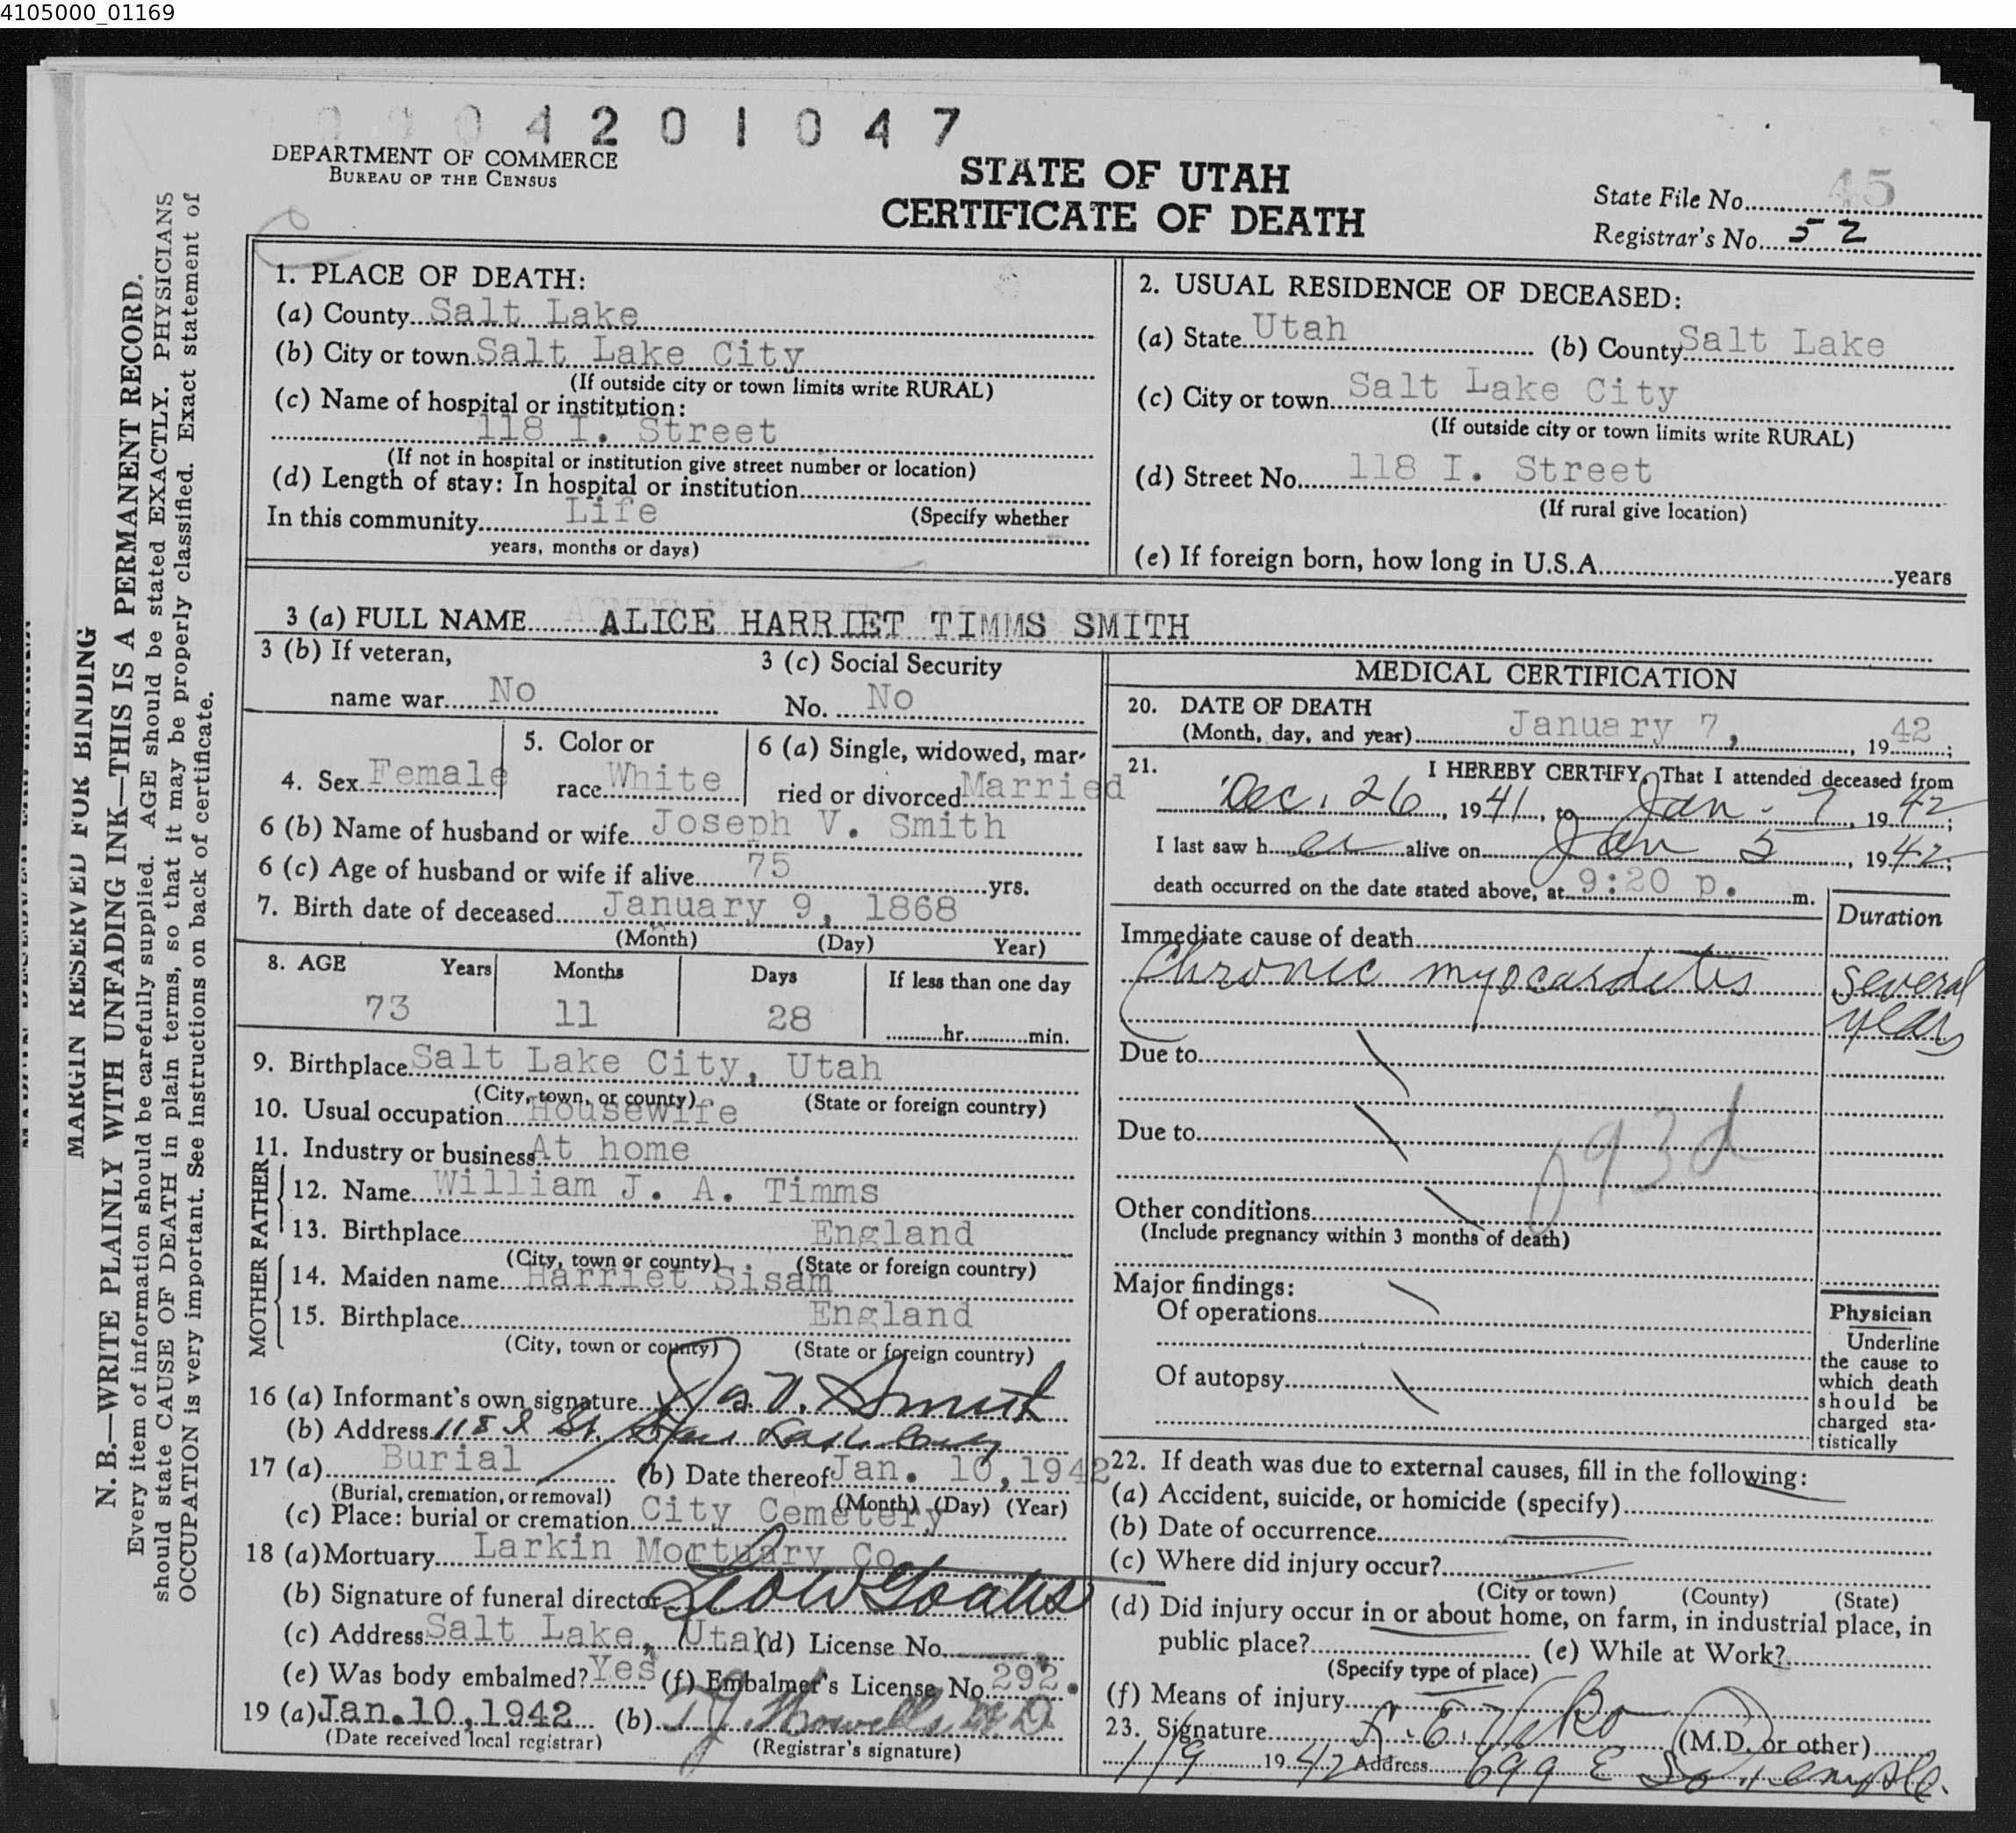 4105000_01169
4 2 0 1 0 4 7
DEPARTMENT OF COMMERCE
BUREAU OF THE CENSUS
STATE OF UTAH
CERTIFICATE OF DEATH
State File No. 45
Registrar's No. 52
MARGIN RESERVED FOR BINDING
N. B.—WRITE PLAINLY WITH UNFADING INK—THIS IS A PERMANENT RECORD.
Every item of information should be carefully supplied. AGE should be stated EXACTLY. PHYSICIANS
should state CAUSE OF DEATH in plain terms, so that it may be properly classified. Exact statement of
OCCUPATION is very important. See instructions on back of certificate.
1. PLACE OF DEATH:
(a) County Salt Lake
(b) City or town Salt Lake City
(If outside city or town limits write RURAL)
(c) Name of hospital or institution:
118 I. Street
(If not in hospital or institution give street number or location)
(d) Length of stay: In hospital or institution
In this community Life (Specify whether
years, months or days)
2. USUAL RESIDENCE OF DECEASED:
(a) State Utah (b) County Salt Lake
(c) City or town Salt Lake City
(If outside city or town limits write RURAL)
(d) Street No. 118 I. Street
(If rural give location)
(e) If foreign born, how long in U.S.A. years
3 (a) FULL NAME ALICE HARRIET TIMMS SMITH
3 (b) If veteran,
name war No
3 (c) Social Security
No. No
4. Sex Female
5. Color or
race White
6 (a) Single, widowed, mar-
ried or divorced Married
6 (b) Name of husband or wife Joseph V. Smith
6 (c) Age of husband or wife if alive 75 yrs.
7. Birth date of deceased January 9, 1868
(Month) (Day) Year)
8. AGE Years Months Days If less than one day
73 11 28 hr. min.
9. Birthplace Salt Lake City, Utah
(City, town, or county) (State or foreign country)
10. Usual occupation Housewife
11. Industry or business At home
FATHER
12. Name William J. A. Timms
13. Birthplace England
(City, town or county) (State or foreign country)
MOTHER
14. Maiden name Harriet Sisam
15. Birthplace England
(City, town or county) (State or foreign country)
16 (a) Informant's own signature Jos. V. Smith
(b) Address 118 I St.
17 (a) Burial (b) Date thereof Jan. 10, 1942
(Burial, cremation, or removal) (Month) (Day) (Year)
(c) Place: burial or cremation City Cemetery
18 (a) Mortuary Larkin Mortuary Co
(b) Signature of funeral director
(c) Address Salt Lake, Utah (d) License No.
(e) Was body embalmed? Yes (f) Embalmer's License No. 292.
19 (a) Jan. 10, 1942 (b) T J. Howells M D
(Date received local registrar) (Registrar's signature)
MEDICAL CERTIFICATION
20. DATE OF DEATH
(Month, day, and year) January 7, , 1942;
21. I HEREBY CERTIFY, That I attended deceased from
Dec. 26, 1941, to Jan - 7, 1942;
I last saw h er alive on Jan 5, 1942;
death occurred on the date stated above, at 9:20 p. m.
Duration
Immediate cause of death
Chronic myocarditis several
years
Due to
Due to
93d
Other conditions
(Include pregnancy within 3 months of death)
Major findings:
Of operations
Of autopsy
Physician
Underline
the cause to
which death
should be
charged sta-
tistically
22. If death was due to external causes, fill in the following:
(a) Accident, suicide, or homicide (specify)
(b) Date of occurrence
(c) Where did injury occur?
(City or town) (County) (State)
(d) Did injury occur in or about home, on farm, in industrial place, in
public place? (e) While at Work?
(Specify type of place)
(f) Means of injury
23. Signature (M.D. or other)
1/9 1942 Address 699 E So Temple.